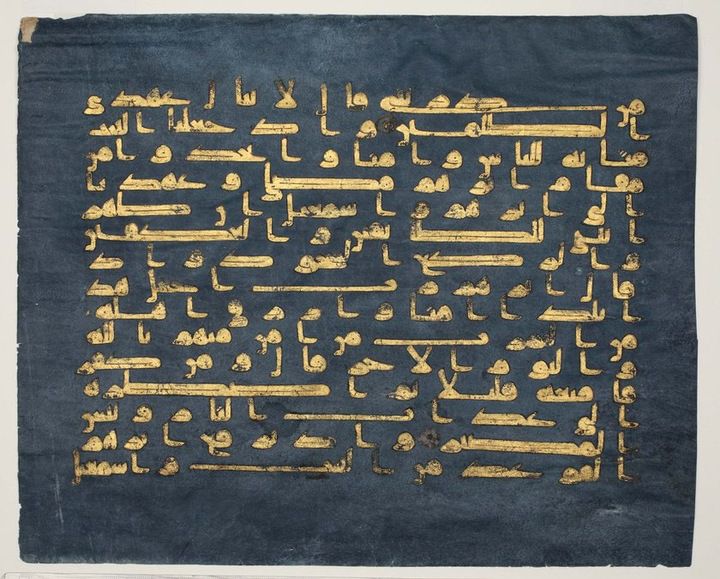 من ذريتي قال لا ينال عهدي
الظلمين واذ جعلنا البيت
مثابه للناس وامنا واتخذوا من
مقام ابرهيم مصلى وعهدنا
الى ابرهيم واسمعيل ان طهرا
بيتي للطائفين والعكفين
والركع السجود واذ
قال ابرهيم رب اجعل هذ
ا بلدا امنا وارزق اهله
من الثمرت من امن منهم بالله
واليوم الاخر قال ومن كفر
فامتعه قليلا ثم اضطره
الى عذاب النار وبئس
المصير واذ يرفع ابرهيم
القوعد من البيت واسمعيل